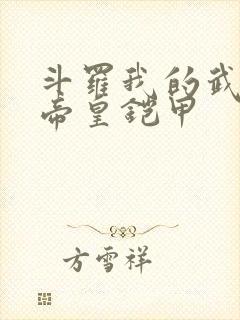 斗羅我的武
帝皇鎧甲
方雪祥